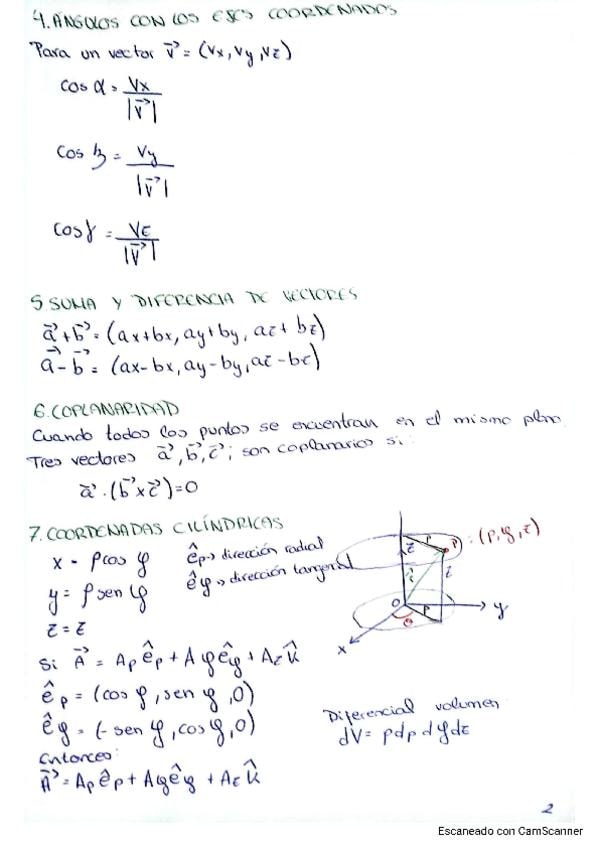 4. ÁNGULOS CON LOS EJES COORDENADOS
Para un vector v⃗ = (Vx, Vy, Vz)
cos α = Vx / |v⃗|
cos β = Vy / |v⃗|
cos γ = Vz / |v⃗|
5 SUMA Y DIFERENCIA DE VECTORES
a⃗ + b⃗ = (ax+bx, ay+by, az+bz)
a⃗ - b⃗ = (ax-bx, ay-by, az-bz)
6. COPLANARIDAD
Cuando todos los puntos se encuentran en el mismo plano.
Tres vectores a⃗, b⃗, c⃗; son coplanarios si:
a⃗ · (b⃗ x c⃗) = 0
7. COORDENADAS CILÍNDRICAS
x = ρ cos φ
ê_ρ → dirección radial
y = ρ sen φ
ê_φ → dirección tangencial
z = z
ρ
P
: (ρ, φ, z)
z
z
r⃗
O
ρ
θ
y
x
Si A⃗ = Aρ ê_ρ + Aφ ê_φ + Az k̂
ê_ρ = (cos φ, sen φ, 0)
ê_φ = (- sen φ, cos φ, 0)
Entonces:
A⃗ = Aρ ê_ρ + Aφ ê_φ + Az k̂
Diferencial volumen
dV = ρ dρ dφ dz
2
Escaneado con CamScanner